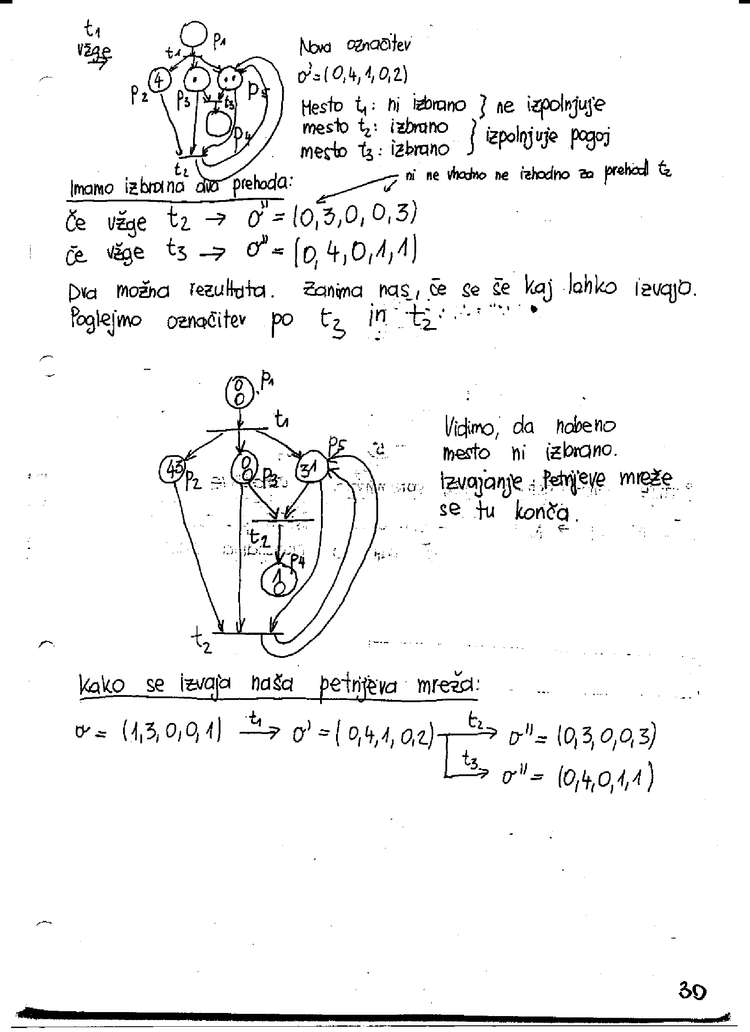 t1
vžge
p1
t1
4
p2
p3
t3
p5
p4
t2
Nova označitev
σ'=(0,4,1,0,2)
Mesto t1: ni izbrano } ne izpolnjuje
mesto t2: izbrano } izpolnjuje pogoj
mesto t3: izbrano
Imamo izbrana dva prehoda:
ni ne vhodno ne izhodno za prehod t2
Če vžge t2 → σ'' = (0,3,0,0,3)
če vžge t3 → σ'' = (0,4,0,1,1)
Dva možna rezultata. Zanima nas, če se še kaj lahko izvaja.
Poglejmo označitev po t3 in t2
0
0
p1
t1
p5
43
p2
0
0
p3
31
t2
p4
1
0
t2
Vidimo, da nobeno
mesto ni izbrano.
Izvajanje Petrijeve mreže
se tu konča.
Kako se izvaja naša petrijeva mreža:
σ = (1,3,0,0,1) t1→ σ' = (0,4,1,0,2) t2→ σ'' = (0,3,0,0,3)
t3→ σ'' = (0,4,0,1,1)
30